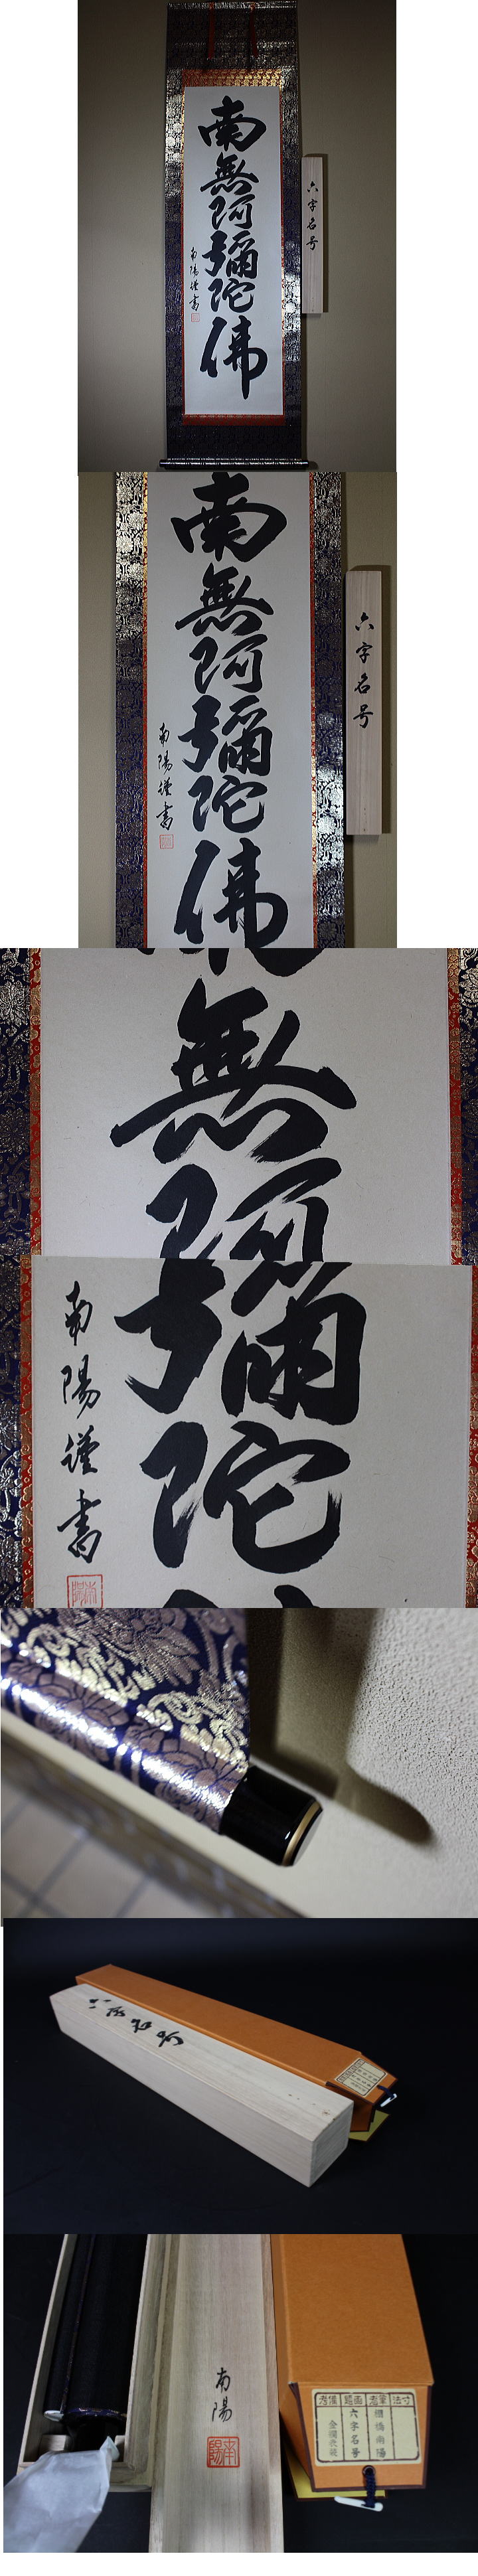 南無阿彌陀佛
南陽謹書
六字名号
南無阿彌陀佛
南陽謹書
六字名号
無阿
彌陀
南陽謹書
六字名号
南陽
南陽
備考 画題 筆者 寸法
六字名号
南陽